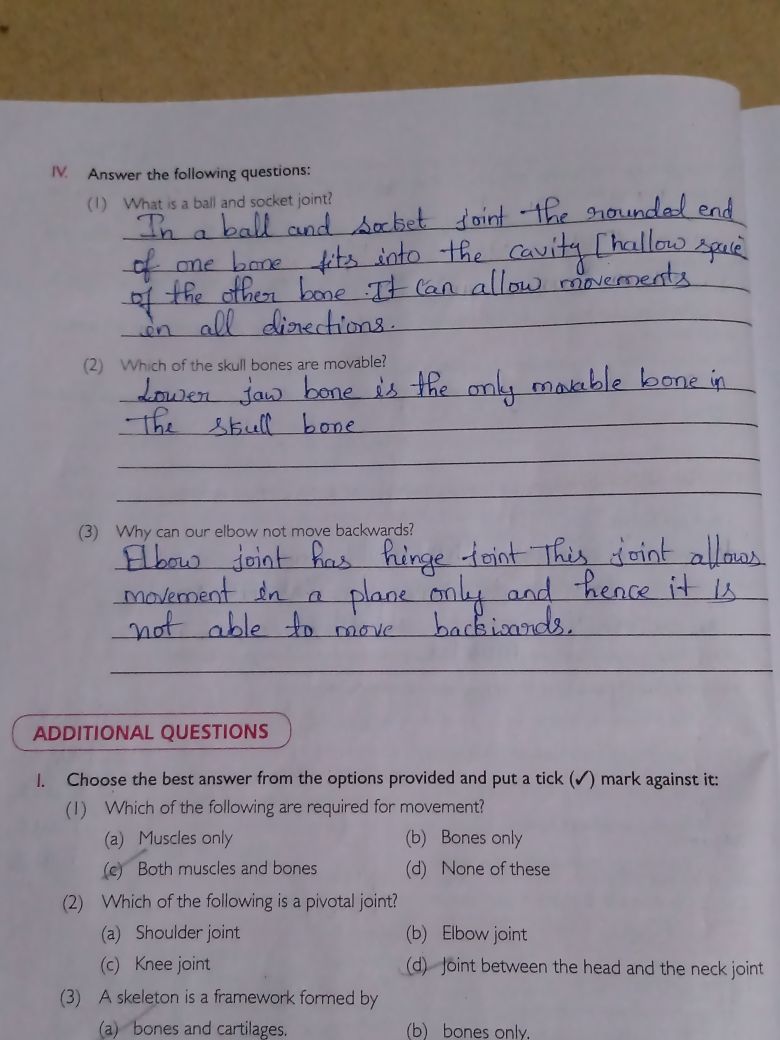 IV. Answer the following questions:
(1) What is a ball and socket joint?
In a ball and socket joint the rounded end
of one bone fits into the cavity [hallow space
of the other bone. It can allow movements
in all directions.
(2) Which of the skull bones are movable?
Lower jaw bone is the only movable bone in
the skull bone
(3) Why can our elbow not move backwards?
Elbow joint has hinge joint This joint allows
movement in a plane only and hence it is
not able to move backwards.
ADDITIONAL QUESTIONS
I. Choose the best answer from the options provided and put a tick (✓) mark against it:
(1) Which of the following are required for movement?
(a) Muscles only (b) Bones only
(c) Both muscles and bones (d) None of these
(2) Which of the following is a pivotal joint?
(a) Shoulder joint (b) Elbow joint
(c) Knee joint (d) Joint between the head and the neck joint
(3) A skeleton is a framework formed by
(a) bones and cartilages. (b) bones only.